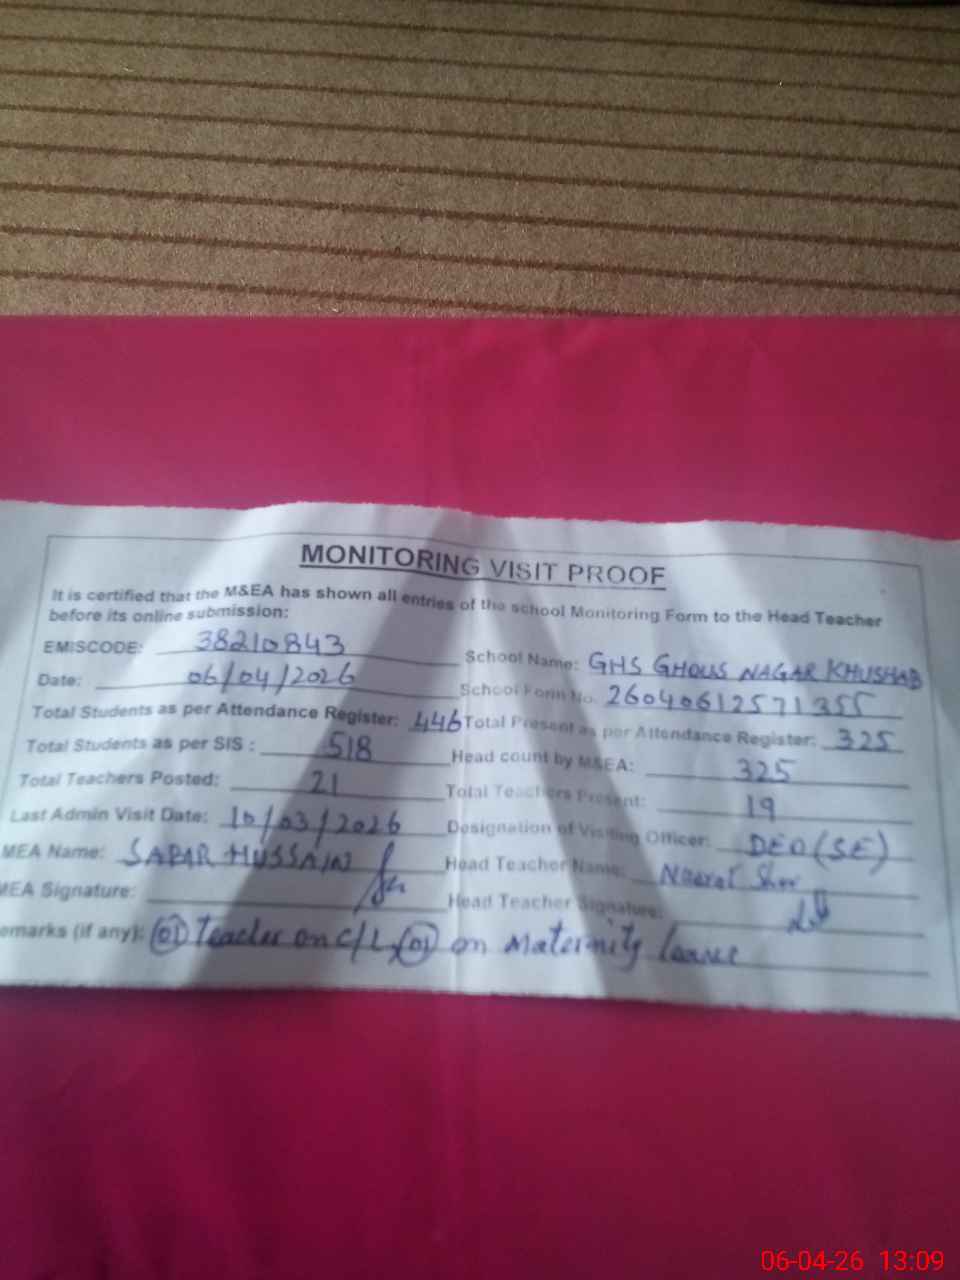 MONITORING VISIT PROOF
It is certified that the M&EA has shown all entries of the school Monitoring Form to the Head Teacher
before its online submission:
EMISCODE: 38210843 School Name: GHS GHOUS NAGAR KHUSHAB
Date: 06/04/2026 School Form No. 26040612571355
Total Students as per Attendance Register: 446 Total Present as per Attendance Register: 325
Total Students as per SIS : 518 Head count by M&EA: 325
Total Teachers Posted: 21 Total Teachers Present: 19
Last Admin Visit Date: 10/03/2026 Designation of Visiting Officer: DEO (SE)
MEA Name: SABAR HUSSAIN Head Teacher Name:
MEA Signature: Head Teacher Signature:
emarks (if any): 01 Teacher on C/L, 01 on Maternity leave
06-04-26 13:09